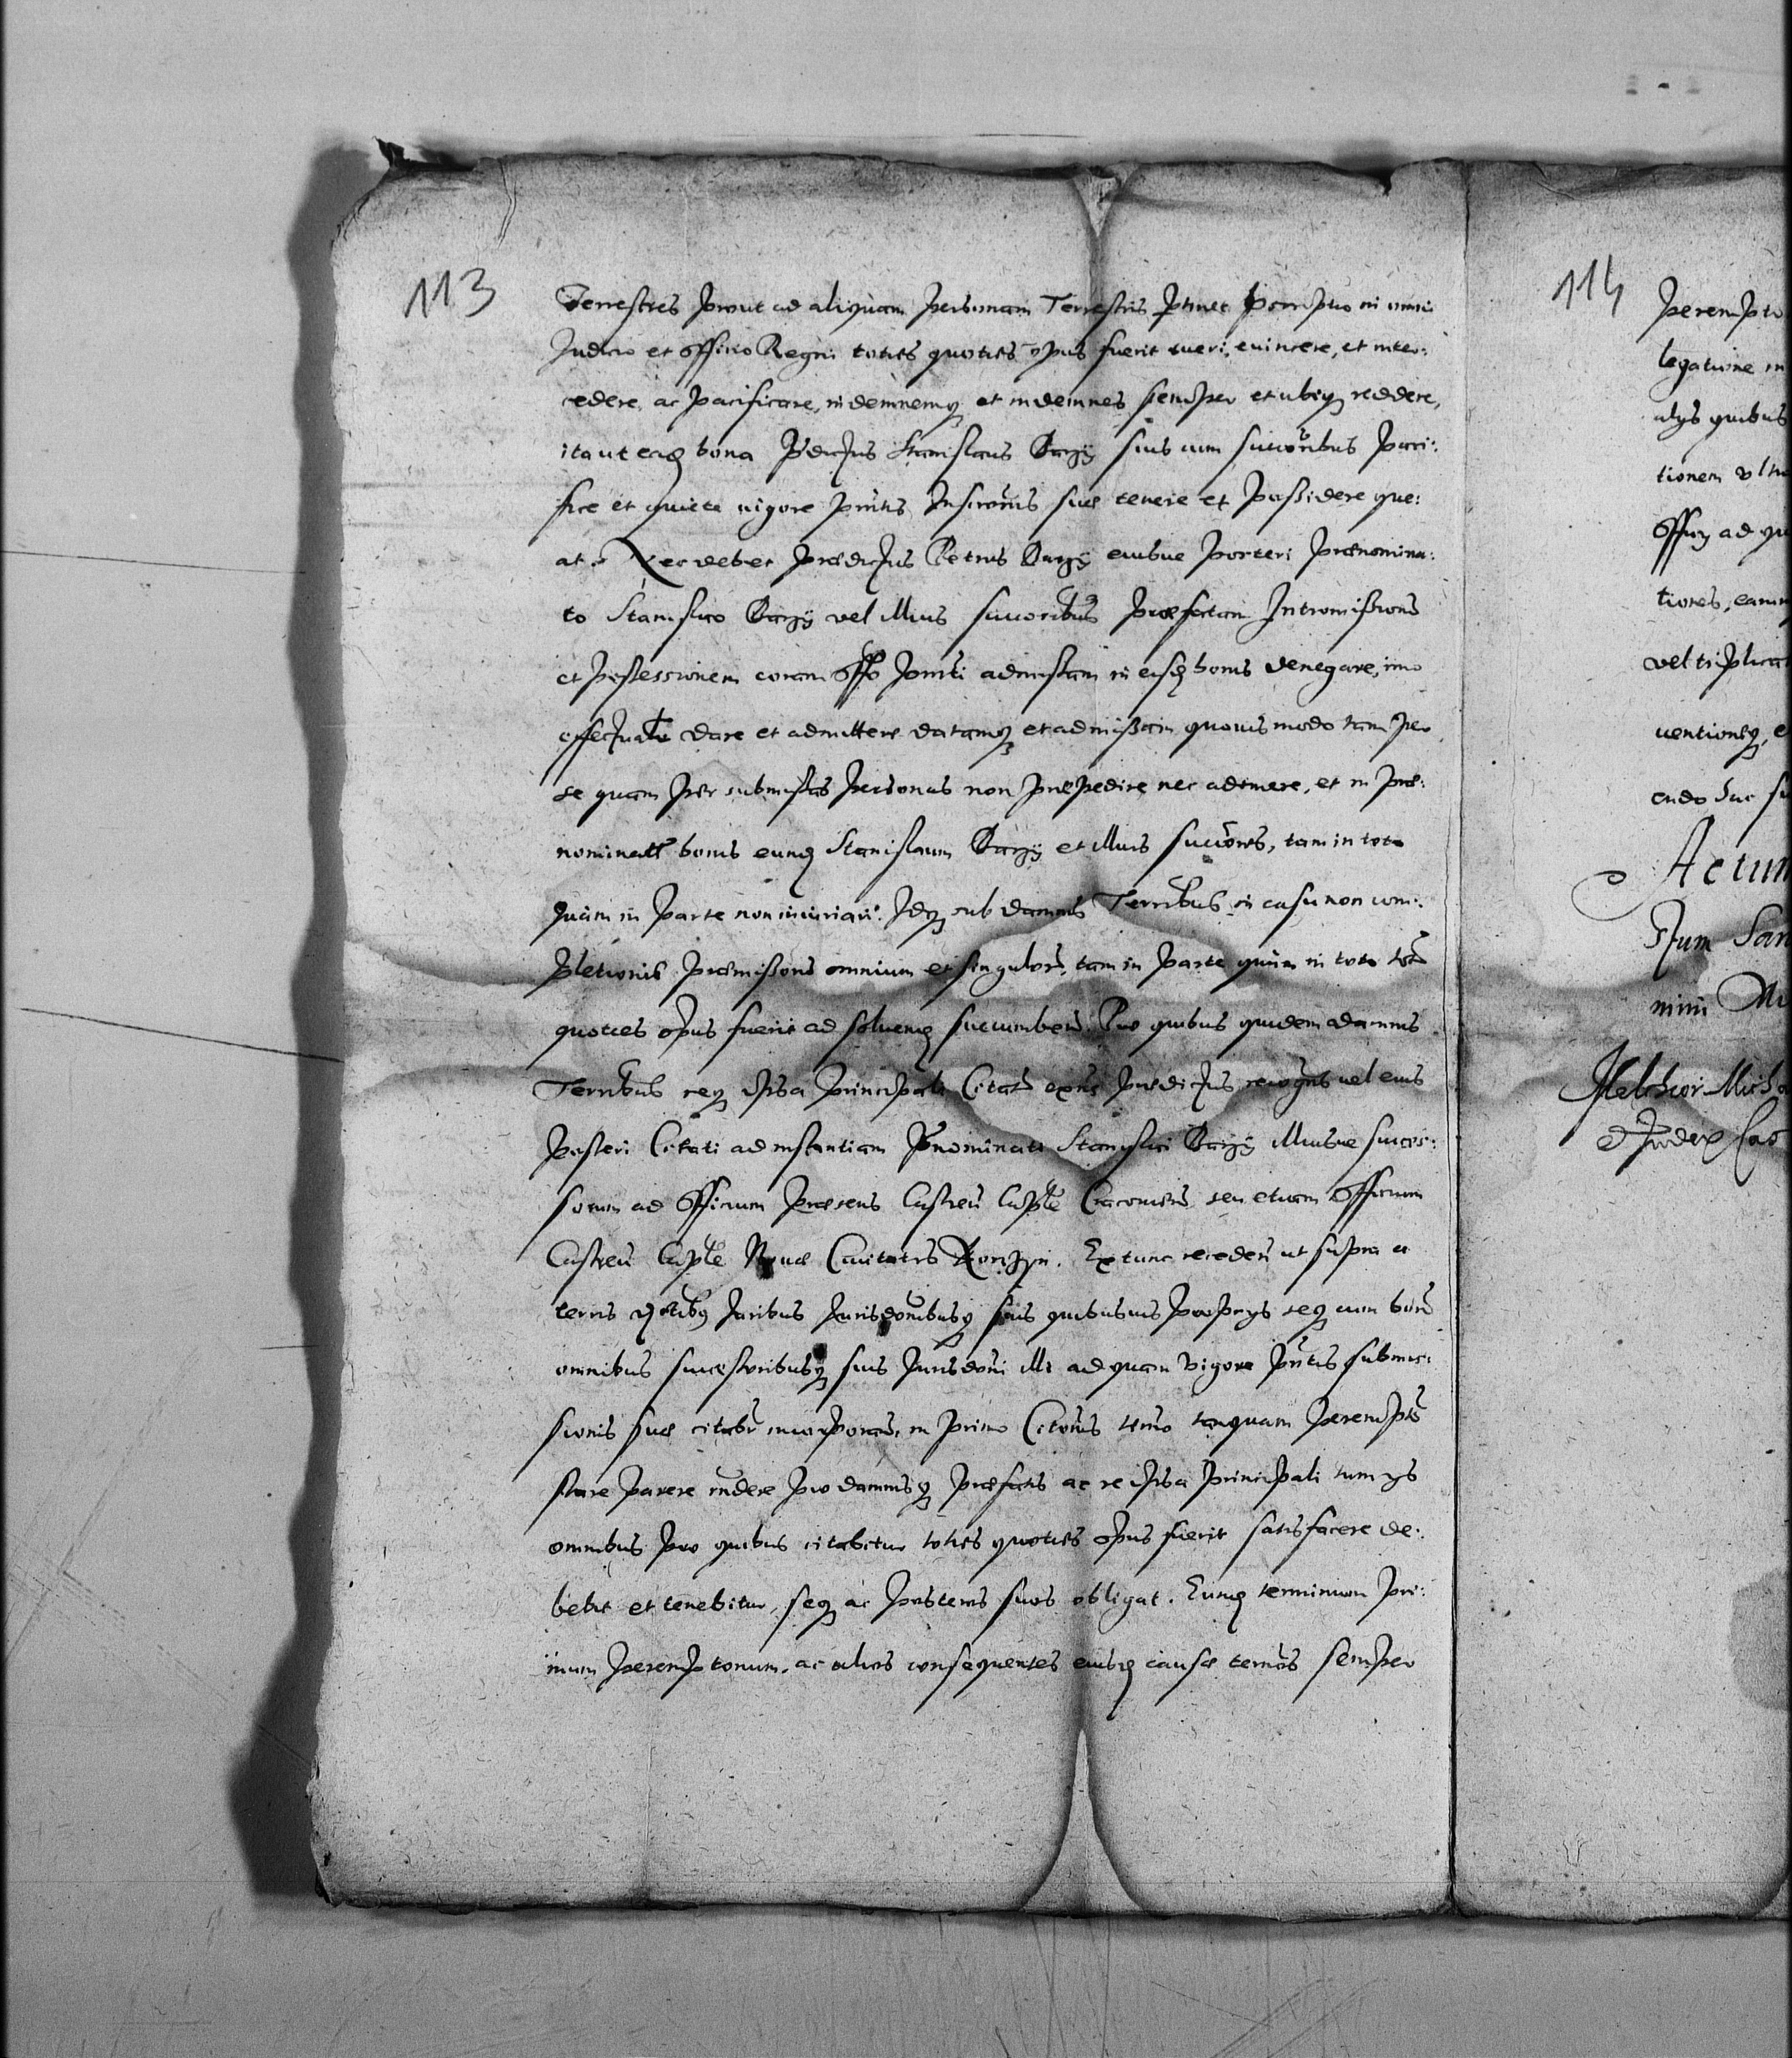 113
Terrestres prout ad aliquam personam Terrestris ptinet in omni
Judicio et officio Regni toties quoties opus fuerit tueri, evincere, et inter:
cedere, ac pacificare, indemnemq et indemnes semper et ubiq reddere,
ita ut eadem bona Stanislaus Barzÿ suis cum succoribus paci:
fice et quiete vigore pntis Inscronis suae tenere et possidere que:
at. Nec debet praedictus Petrus Barzÿ eiusve posteri praenomina:
to Stanislao Barzÿ vel illius succoribus praefatam Intromissionis
et possessionem coram offo pnti admissam in eisd bonis denegare, imo
effectualr dare et admittere datamq et admissam quovis modo tam per
se quam per submissas personas non praepedire nec adimere, et in prae:
nominatis bonis eund Stanislaum Barzÿ et illius succores, tam in toto
quam in parte non iniuriari. Idq sub damnis Terribus in casu non com:
pletionis praemissors omnium et singulors, tam in parte quam in toto tots
quoties opus fuerit ad solvend succumbens. Pro quibus quidem damnis
Terribus req ipsa principali Citats praedictus recogns vel eius
posteri Citati ad instantiam pnominati Stanislai Barzÿ illiusve succes:
sorum ad officium praesens Castren Caple Cracoviens seu etiam officium
Castren Caple Novae Civitatis Korczyn. Extunc receden ut supra a
terris Juribus Jurisdonibusq suis quibusvis proprys seq cum bonis
omnibus successoribusq suis Jurisdoni illi ad quam vigore pntis submis:
sionis suae citabr incorporans, in primo Citonis termo tanquam perempto
stare parere rndere pro damnisq praefatis ac re ipsa principali tum ys
omnibus pro quibus citabitur toties quoties opus fuerit satisfacere de:
bebit et tenebitur, seq ac posteros suos obligat. Eund terminum pri:
mum peremptorium, ac alios consequentes eiusd causae termos semper
114
perempto
legatione in
alys quibus
tionem
offig ad qu
tiones, eam
vel triplicat
ventioneq, e
endo huc
Actum
Stum San
mini
Melchior Mich
Judex Cas